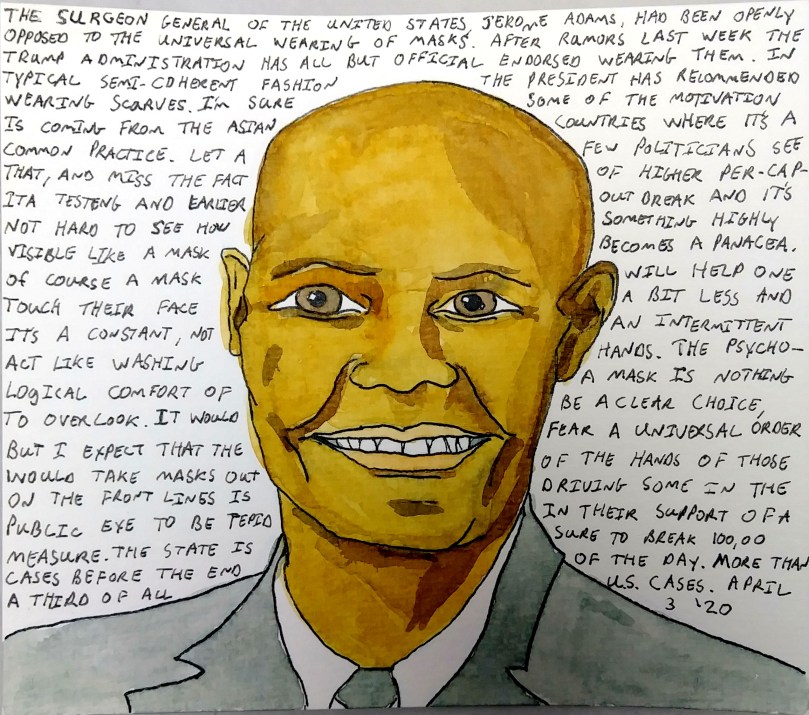 THE SURGEON GENERAL OF THE UNITED STATES, JEROME ADAMS, HAD BEEN OPENLY
OPPOSED TO THE UNIVERSAL WEARING OF MASKS. AFTER RUMORS LAST WEEK THE
TRUMP ADMINISTRATION HAS ALL BUT OFFICIAL ENDORSED WEARING THEM. IN
TYPICAL SEMI-COHERENT FASHION THE PRESIDENT HAS RECOMMENDED
WEARING SCARVES. I'M SURE SOME OF THE MOTIVATION
IS COMING FROM THE ASIAN COUNTRIES WHERE IT'S A
COMMON PRACTICE. LET A FEW POLITICIANS SEE
THAT, AND MISS THE FACT OF HIGHER PER-CAP-
ITA TESTENG AND EARLIER OUTBREAK AND IT'S
NOT HARD TO SEE HOW SOMETHING HIGHLY
VISIBLE LIKE A MASK BECOMES A PANACEA.
OF COURSE A MASK WILL HELP ONE
TOUCH THEIR FACE A BIT LESS AND
ITS A CONSTANT, NOT AN INTERMITTENT
ACT LIKE WASHING HANDS. THE PSYCHO-
LOGICAL COMFORT OF A MASK IS NOTHING
TO OVERLOOK. IT WOULD BE A CLEAR CHOICE,
BUT I EXPECT THAT THE FEAR A UNIVERSAL ORDER
WOULD TAKE MASKS OUT OF THE HANDS OF THOSE
ON THE FRONT LINES IS DRIVING SOME IN THE
PUBLIC EYE TO BE TEPID IN THEIR SUPPORT OF A
MEASURE. THE STATE IS SURE TO BREAK 100,00
CASES BEFORE THE END OF THE DAY. MORE THAN
A THIRD OF ALL U.S. CASES. APRIL
3 '20